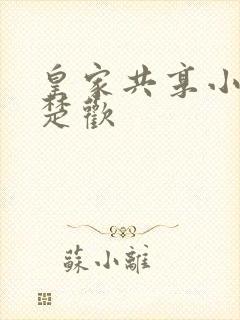 皇家共享小
楚歡
蘇小離